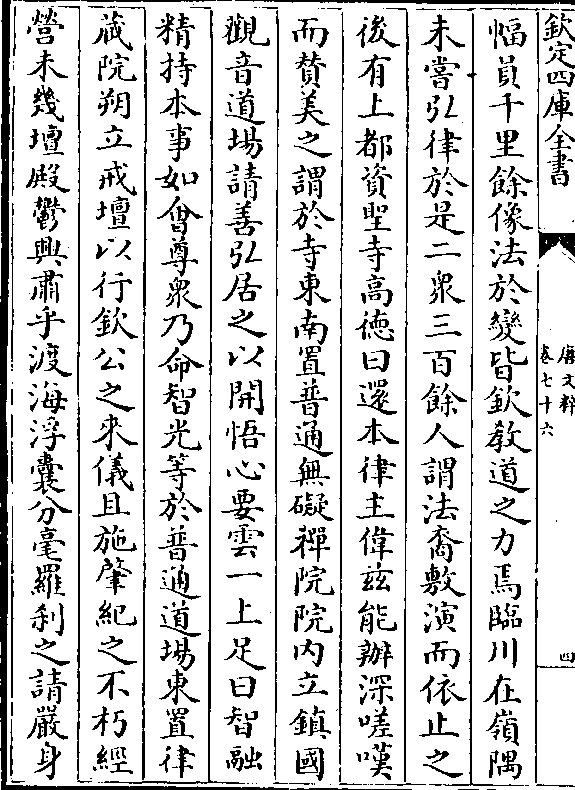 欽定四庫全書
唐文粹
卷七十六
四
幅員千里餘像法於變皆欽教道之力焉臨川在嶺隅
未嘗弘律於是二衆三百餘人謂法裔敷演而依止之
後有上都資聖寺高德曰還本律主偉兹能辦深嗟嘆
而賛美之謂於寺東南置普通無礙禪院院内立鎮國
觀音道場請善弘居之以開悟心要雲一上足曰智融
精持本事如會尊衆乃命智光等於普通道場東置律
藏院朔立戒壇以行欽公之來儀且施肇紀之不朽經
營未幾壇殿鬱興肅乎渡海浮囊分毫羅刹之請嚴身